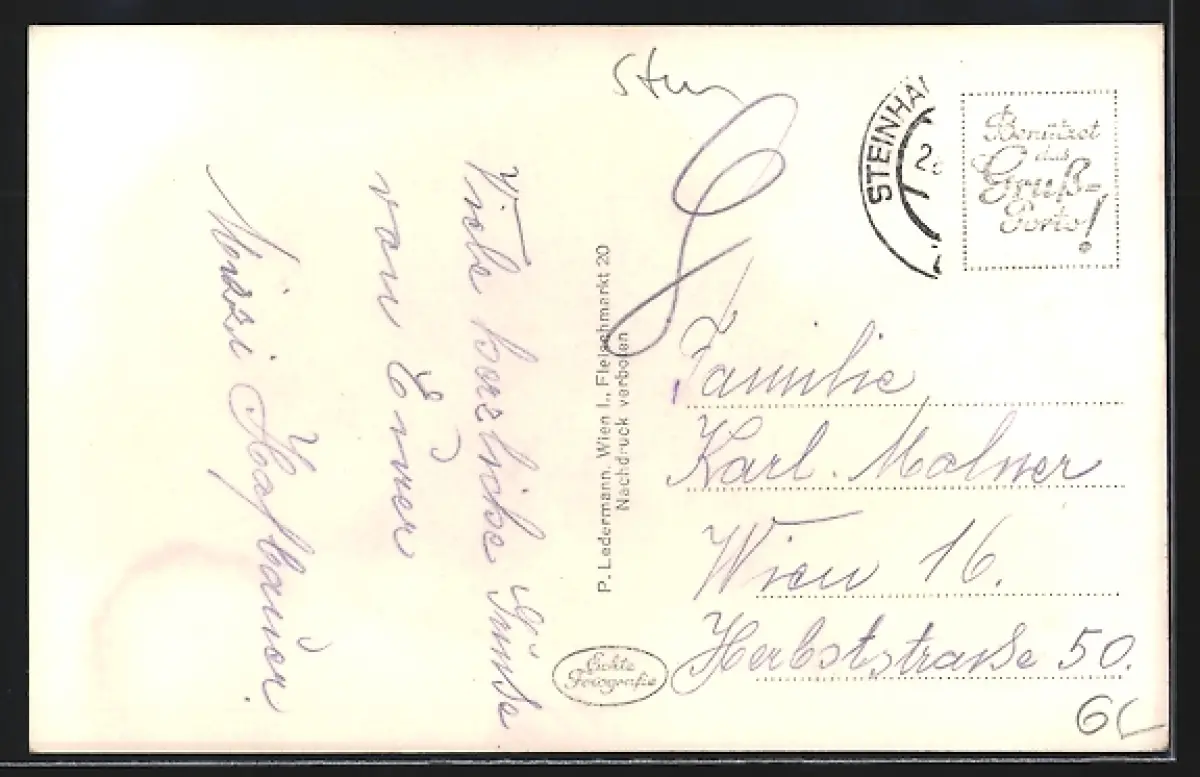 Stein
STEINHA
2
Benützet
das
Gruß-
Porto!
Viele herzliche Grüße
von Euer
Mizzi Hafbauer.
P. Ledermann, Wien I., Fleischmarkt 20
Nachdruck verboten
Familie
Karl. Malner
Wien 16.
Herbststraße 50.
Echte
Fotografie